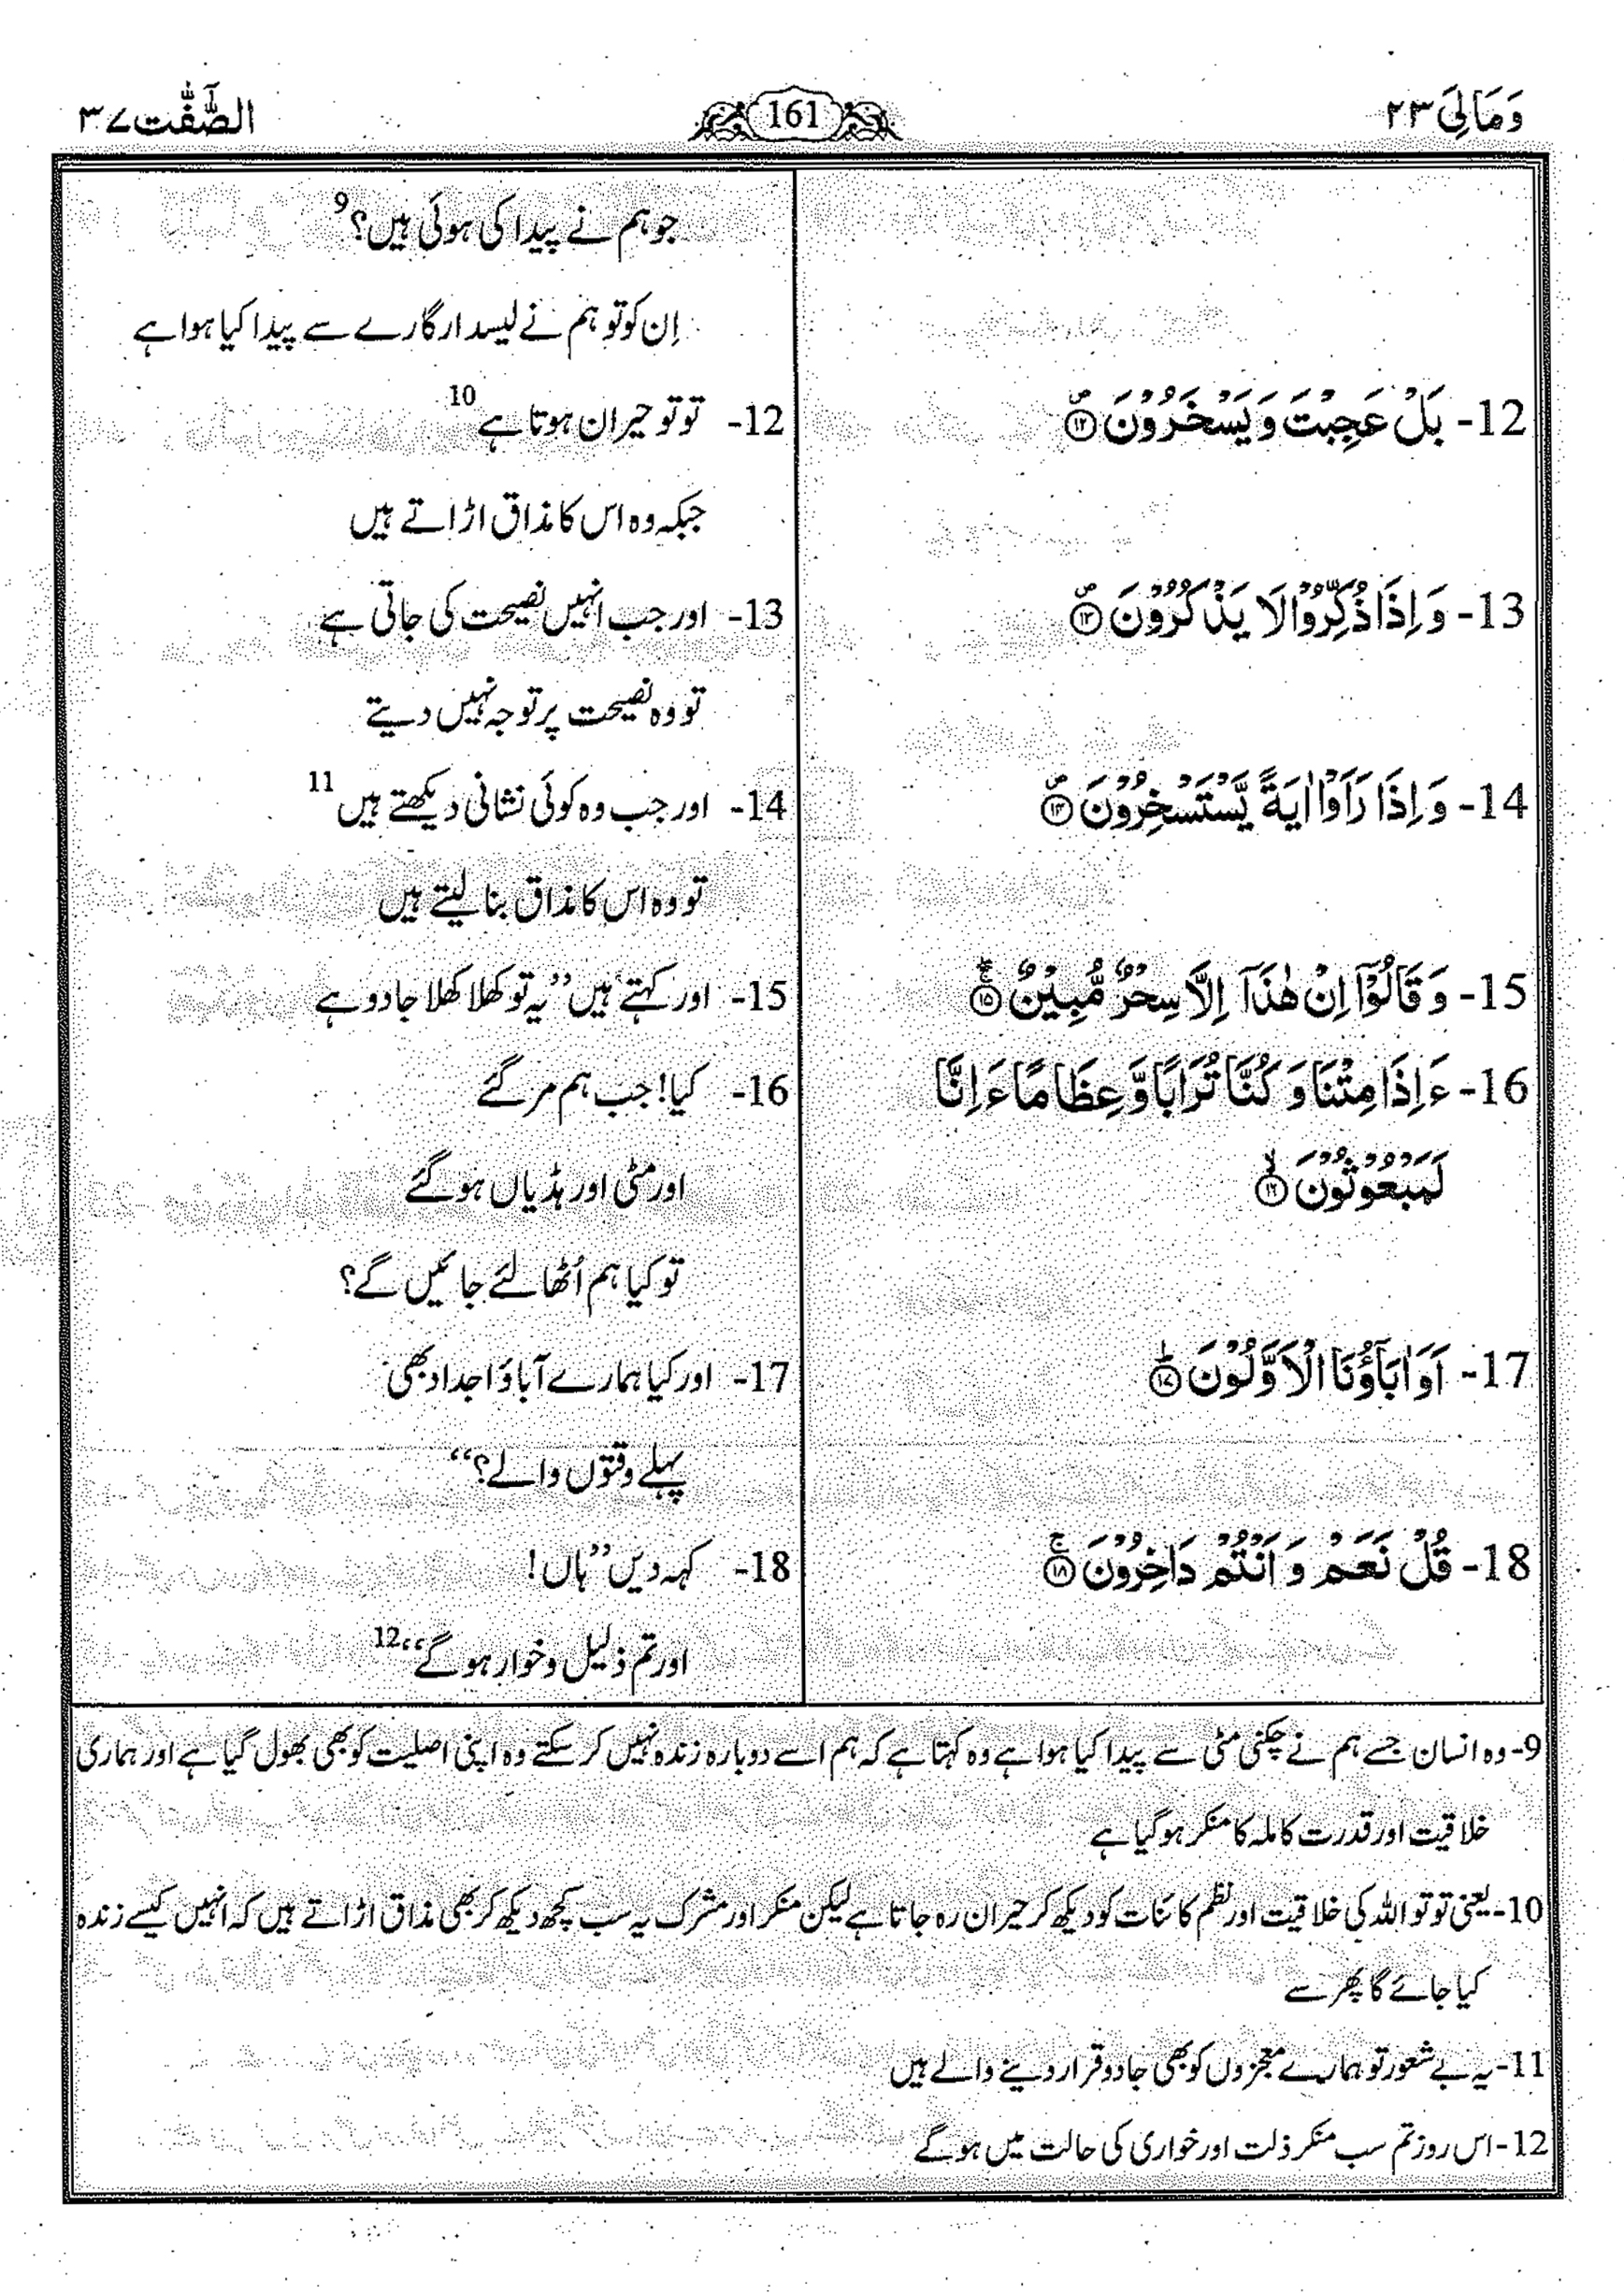 وَمَالِیَ ۲۳
161
الصّٰٓفّٰت ۳۷
جو ہم نے پیدا کی ہوئی ہیں؟9
اِن کو تو ہم نے لیسدار گارے سے پیدا کیا ہوا ہے
12- بَلْ عَجِبْتَ وَ یَسْخَرُوْنَ ۪﴿۱۲﴾
12- تو تو حیران ہوتا ہے10
جبکہ وہ اس کا مذاق اڑاتے ہیں
13- وَ اِذَا ذُكِّرُوْا لَا یَذْكُرُوْنَ ۪﴿۱۳﴾
13- اور جب انہیں نصیحت کی جاتی ہے
تو وہ نصیحت پر توجہ نہیں دیتے
14- وَ اِذَا رَاَوْا اٰیَةً یَّسْتَسْخِرُوْنَ ۪﴿۱۴﴾
14- اور جب وہ کوئی نشانی دیکھتے ہیں11
تو وہ اس کا مذاق بنا لیتے ہیں
15- وَ قَالُوْۤا اِنْ هٰذَاۤ اِلَّا سِحْرٌ مُّبِیْنٌ ﴿۱۵﴾
15- اور کہتے ہیں ’’یہ تو کھلا کھلا جادو ہے
16- ءَاِذَا مِتْنَا وَ كُنَّا تُرَابًا وَّ عِظَامًا ءَاِنَّا
16- کیا! جب ہم مر گئے
لَمَبْعُوْثُوْنَ ﴿۱۶﴾
اور مٹی اور ہڈیاں ہو گئے
تو کیا ہم اُٹھا لئے جائیں گے؟
17- اَوَ اٰبَآؤُنَا الْاَوَّلُوْنَ ﴿۱۷﴾
17- اور کیا ہمارے آباؤ اجداد بھی
پہلے وقتوں والے؟‘‘
18- قُلْ نَعَمْ وَ اَنْتُمْ دَاخِرُوْنَ ﴿۱۸﴾
18- کہہ دیں ’’ہاں!
اور تم ذلیل و خوار ہو گے‘‘12
9- وہ انسان جسے ہم نے چکنی مٹی سے پیدا کیا ہوا ہے وہ کہتا ہے کہ ہم اسے دوبارہ زندہ نہیں کر سکتے وہ اپنی اصلیت کو بھی بھول گیا ہے اور ہماری
خلاقیت اور قدرت کاملہ کا منکر ہو گیا ہے
10- یعنی تو تو اللہ کی خلاقیت اور نظم کائنات کو دیکھ کر حیران رہ جاتا ہے لیکن منکر اور مشرک یہ سب کچھ دیکھ کر بھی مذاق اڑاتے ہیں کہ انہیں کیسے زندہ
کیا جائے گا پھر سے
11- یہ بے شعور تو ہمارے معجزوں کو بھی جادو قرار دینے والے ہیں
12- اس روز تم سب منکر ذلت اور خواری کی حالت میں ہو گے